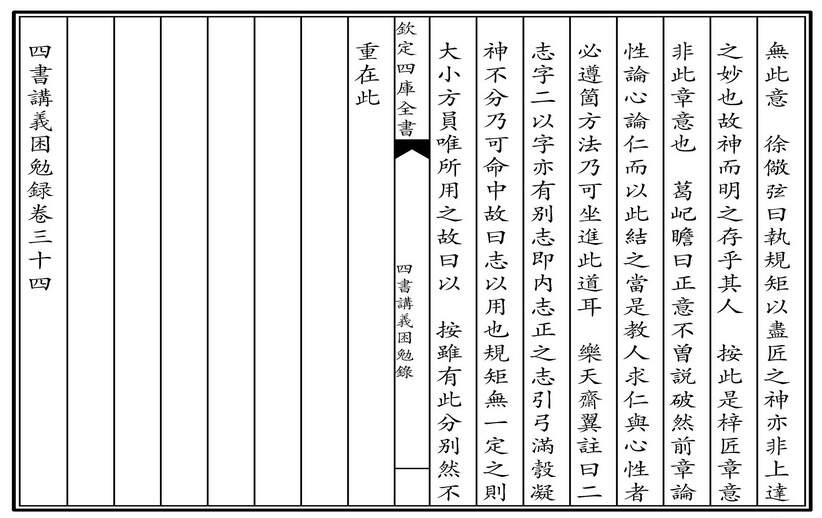 無此意　徐儆弦曰執規矩以盡匠之神亦非上達
之妙也故神而明之存乎其人　按此是梓匠章意
非此章意也　葛屺瞻曰正意不曾説破然前章論
性論心論仁而以此結之當是教人求仁與心性者
必遵箇方法乃可坐進此道耳　樂天齋翼註曰二
志字二以字亦有别志即内志正之志引弓滿彀凝
神不分乃可命中故曰志以用也規矩無一定之則
大小方員唯所用之故曰以　按雖有此分别然不
欽定四庫全書
四書講義困勉錄
重在此
四書講義困勉録卷三十四